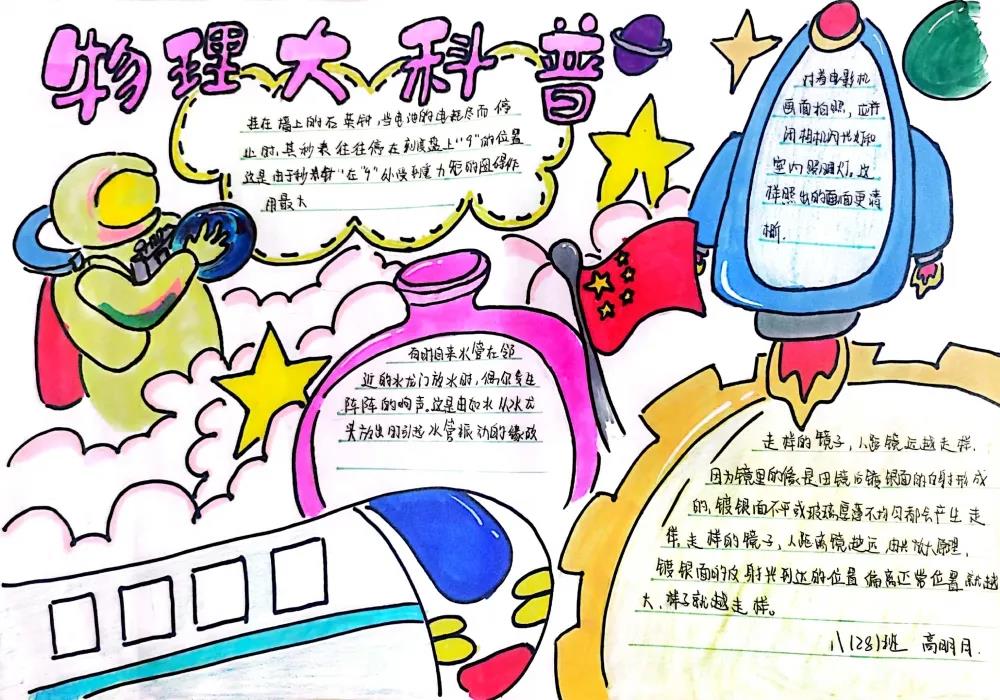 物理大科普
挂在墙上的石英钟,当电池的电耗尽而停
止时,其秒表往往停在刻度盘上"9"的位置
这是由于秒表针"在"9"处受到重力矩的阻碍作
用最大
对着电影机
画面拍照,应节
闭相机闪光灯和
室内照明灯,这
样照出的画面更清
晰.
有时自来水管在邻
近的水龙门放水时,偶尔发生
阵阵的响声。这是由如水从水龙
头放出时引起水管振动的缘故
走样的镜子,人距镜远越走样.
因为镜里的像是由镜后镀银面的反射形成
的,镀银面不平或玻璃厚薄不均匀都会产生走
样,走样的镜子,人距离镜越远,由光放大原理,
镀银面的反射光到达的位置偏离正常位置就越
大,样子就越走样。
八(28)班 高明月.